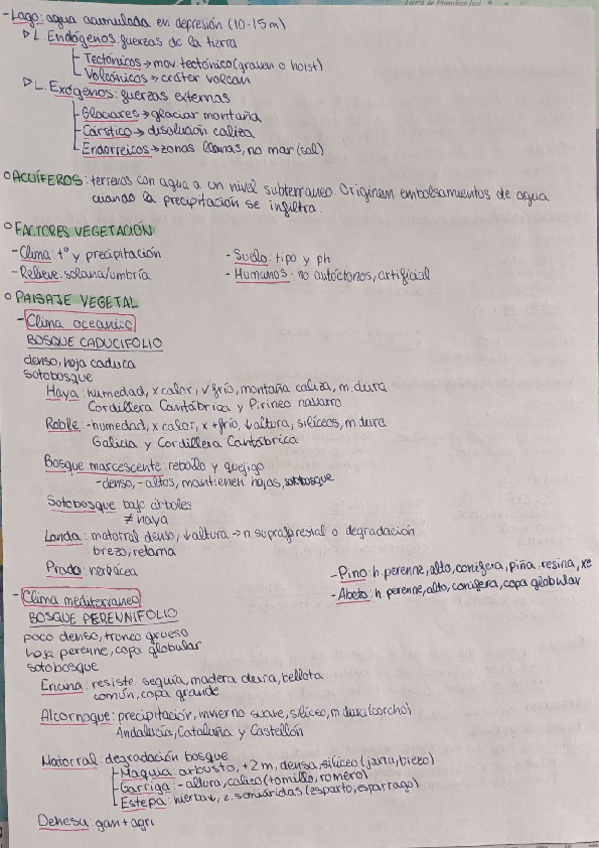 - Lago: agua acumulada en depresión (10-15m)
▷ L. Endógenos: fuerzas de la tierra
Tectónicos → mov. tectónico (graven o horst)
Volcánicos → cráter volcan
▷ L. Exógenos: fuerzas externas
Glaciares → glaciar montaña
Cárstico → disolución caliza
Endorreicos → zonas llanas, no mar (sal)
○ ACUÍFEROS: terrenos con agua a un nivel subterraneo. Originem embolsamientos de agua
cuando la precipitación se infiltra.
○ FACTORES VEGETACIÓN
- Clima: tº y precipitación
- Suelo: tipo y ph
- Relieve: solana/umbría
- Humanos: no autóctonos, artificial
○ PAISAJE VEGETAL
- Clima oceanico
BOSQUE CADUCIFOLIO
denso, hoja caduca
sotobosque
Haya: humedad, x calor, ✓ frío, montaña caliza, m. dura
Cordillera Cantábrica y Pirineo navarro
Roble: - humedad, x calor, x + frío, ↓ altura, silíceos, m. dura
Galicia y Cordillera Cantábrica
Bosque marcescente: rebollo y quejigo
- denso, - altos, mantienen hojas, sotobosque
Sotobosque bajo árboles
≠ haya
Landa: matorral denso, ↓ altura → n. supraforestal o degradación
brezo, retama
Prado: herbácea
- Pino: h. perenne, alto, conífera, piña. resina, xe
- Abeto: h. perenne, alto, conífera, copa globular
- Clima mediterraneo
BOSQUE PERENNIFOLIO
poco denso, tronco grueso
hoja perenne, copa globular
sotobosque
Encina: resiste sequía, madera dura, bellota
común, copa grande
Alcornoque: precipitación, invierno suave, silíceo, m. dura (corcho)
Andalucía, Cataluña y Castellón
Matorral: degradación bosque
Maquia: arbusto, +2m, densa, silíceo (jara, brezo)
Garriga: - altura, caliza (tomillo, romero)
Estepa: hierbas, z. semiáridas (esparto, esparrago)
Dehesa: gan + agri